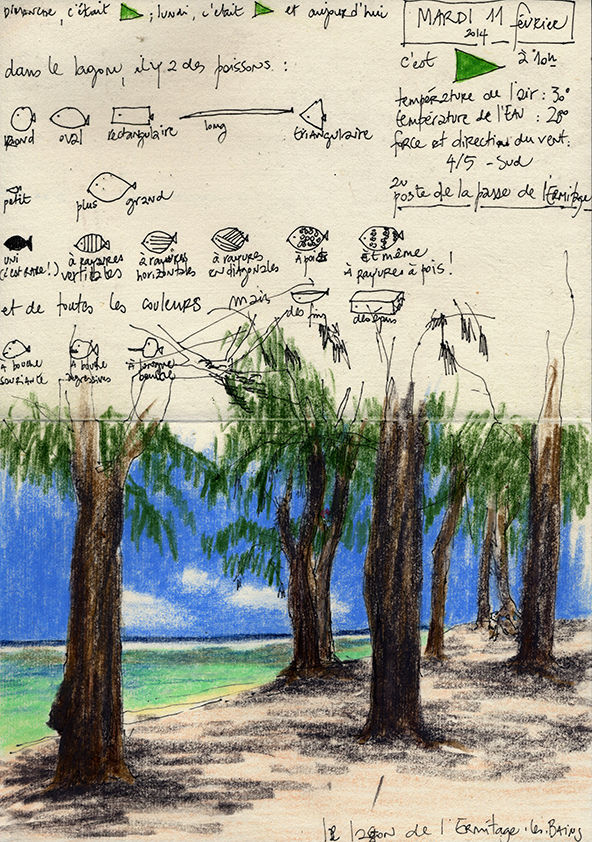 DIMANCHE, c'était ; lundi, c'était et aujourd'hui
MARDI 11 février
2014
c'est à 10h
dans le lagon, il y 2 des poissons :
température de l'air : 30°
température de l'EAU : 28°
force et direction du vent :
4/5 - Sud
au
poste de la passe de l'ERmitage
Rond oval rectangulaire long triangulaire
petit plus grand
UNI
(c'est RARE !)
à rayures
verticales
à rayures
horizontales
à rayures
en diagonales
à pois
Et même
à rayures à pois !
et de toutes les couleurs mais des fins des épais
à bouche
souriante
à bouche
agressives
à longue
bouche
le lagon de l'Ermitage-les-BAiNs